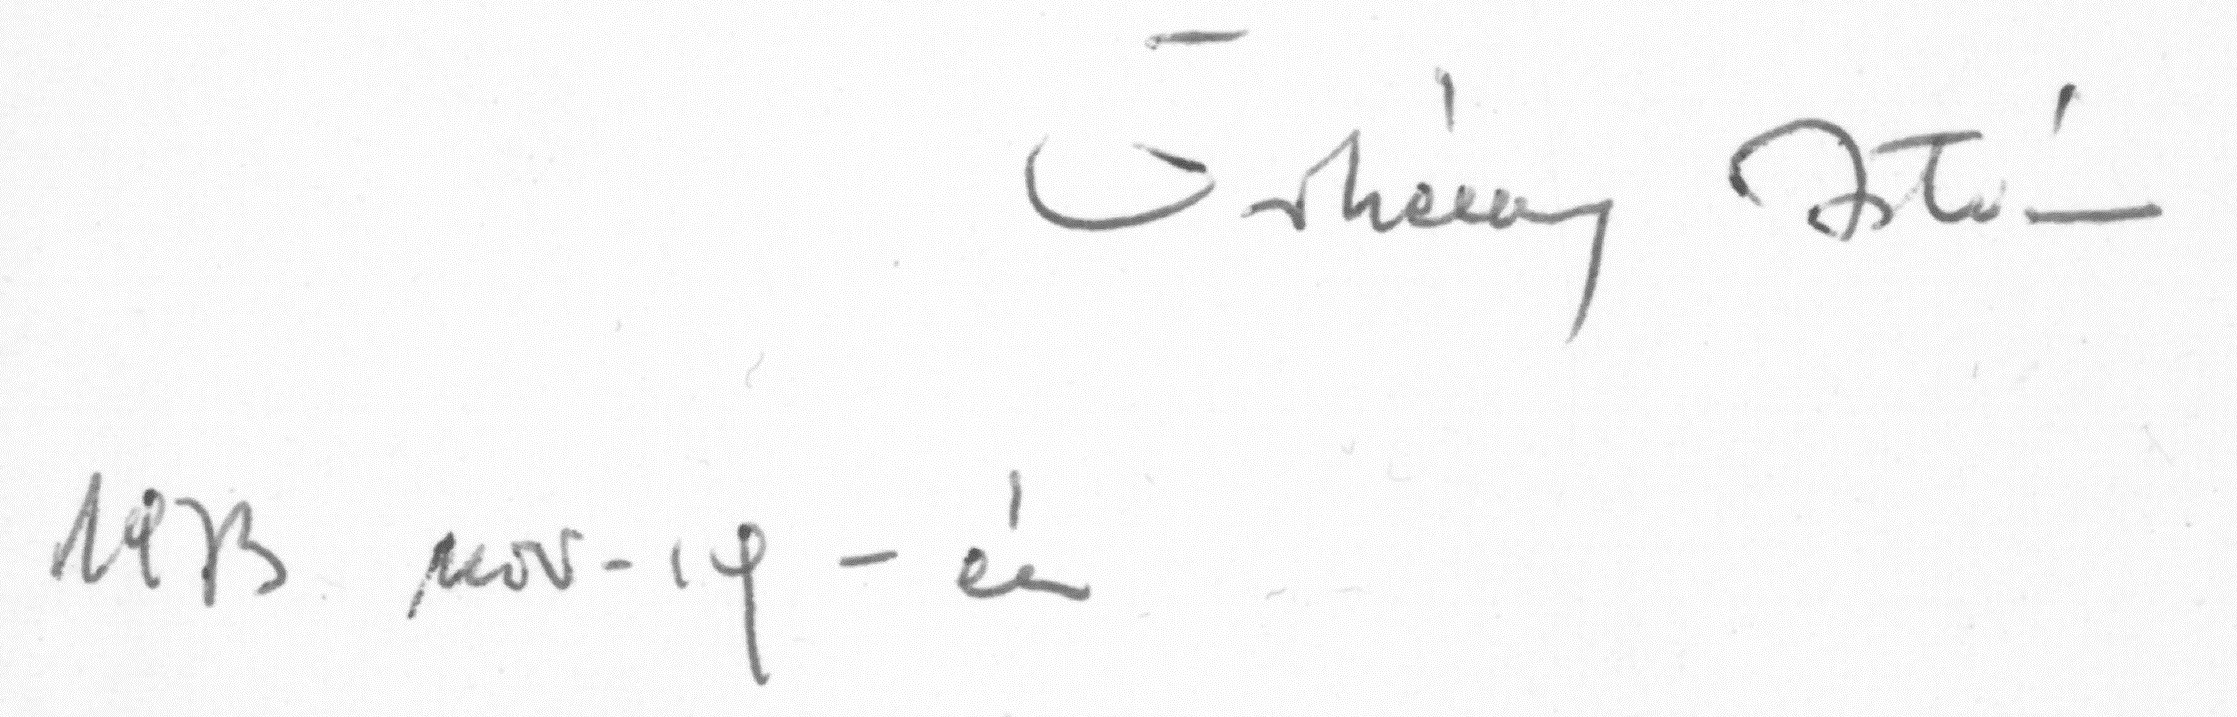 Örkény István
1973 nov-19-én